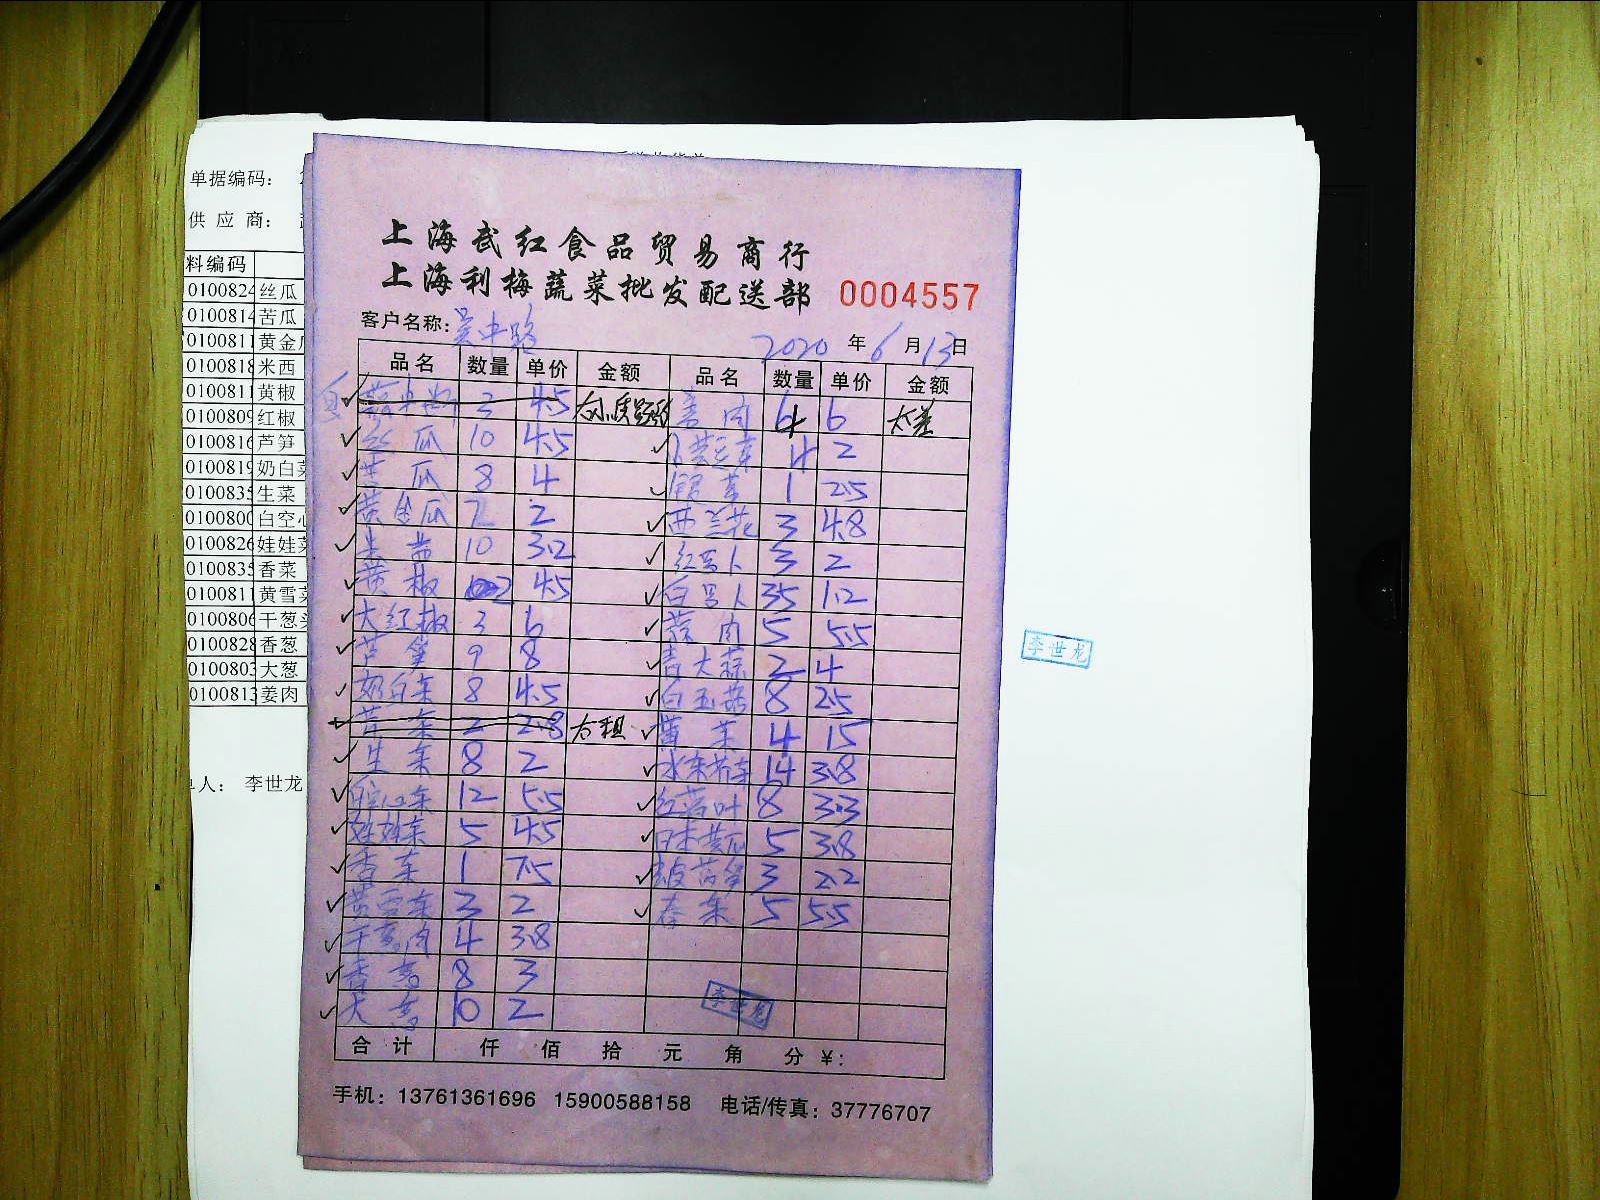 单据编码：
供 应 商：
料编码
0100824 丝瓜
0100814 苦瓜
0100811 黄金
0100818 米西
0100811 黄椒
0100809 红椒
0100816 芦笋
0100819 奶白菜
0100835 生菜
0100800 白空心
0100826 娃娃菜
0100835 香菜
0100811 黄雪菜
0100806 干葱头
0100828 香葱
0100803 大葱
0100813 姜肉
人： 李世龙
上海武红食品贸易商行
上海利梅蔬菜批发配送部 0004557
客户名称：吴中路 2020 年 6 月 13 日
品名 数量 单价 金额 品名 数量 单价 金额
3 4.5 姜肉 4 6 太差
丝瓜 10 4.5 4 2
苦瓜 8 4 1 2.5
黄金瓜 2 2 西兰花 3 4.8
10 3.2 3 2
黄椒 2 4.5 35 1.2
大红椒 3 6 蒜肉 5 5.5
芦笋 9 8 青大蒜 2 4
奶白菜 8 4.5 白玉菇 8 2.5
2 2.8 太粗 4 15
生菜 8 2 水东芥菜 14 3.8
白空心菜 12 5.5 8 3.3
娃娃菜 5 4.5 日本黄瓜 5 3.8
香菜 1 7.5 3 2.2
黄雪菜 3 2 5 5.5
干葱肉 4 3.8
香葱 8 3
大葱 10 2
李世龙
合计 仟 佰 拾 元 角 分 ¥:
手机：13761361696 15900588158 电话/传真：37776707
李世龙